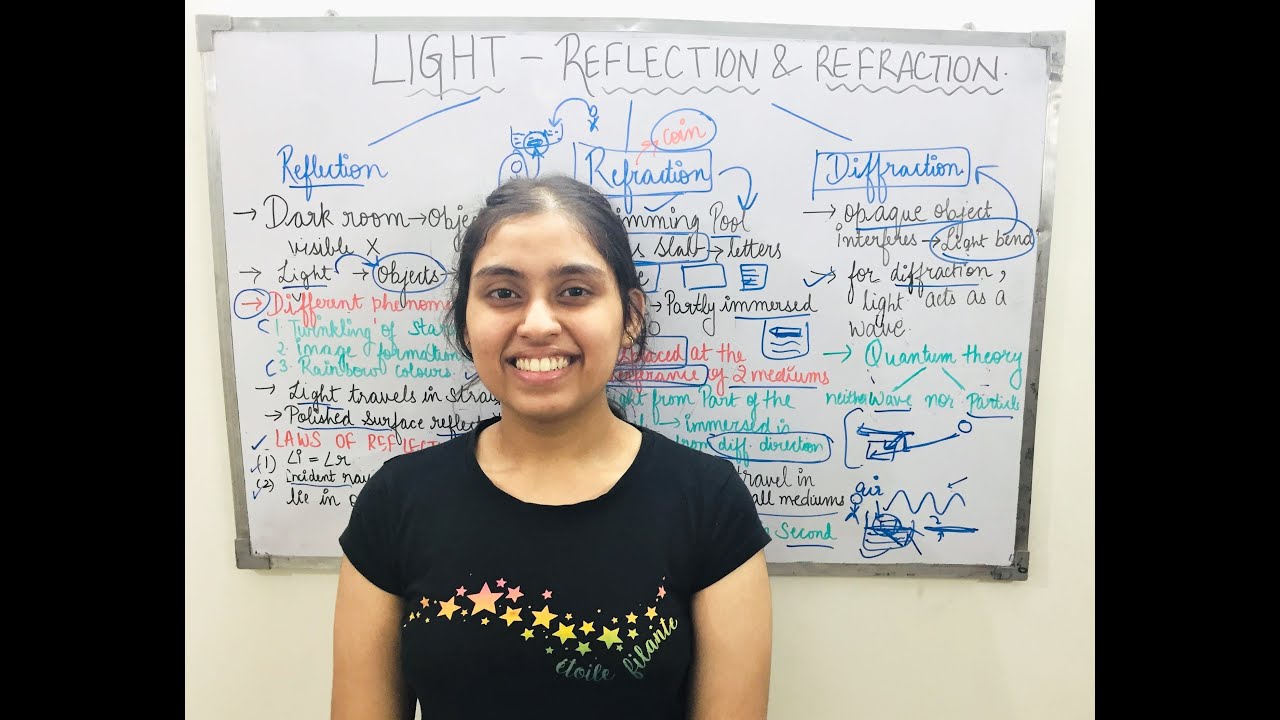 LIGHT – REFLECTION & REFRACTION.
coin
Reflection
Refraction
Diffraction
→ Dark room → Obje
visible X
→ Light → Objects
→ Different phenome
1. Twinkling of sta
2. Image formation
3. Rainbow colours
→ Light travels in stra
→ Polished surface refle
LAWS OF REFLECT
(1) ∠i = ∠r
(2) Incident ray
lie in
imming Pool
s slab → letters
→ Partly immersed
placed at the
of 2 mediums
ght from Part of the
→ immersed is
from diff. direction
travel in
all mediums
Second
→ opaque object
interferes → Light bend
→ for diffraction,
light acts as a
wave.
→ Quantum theory
neither wave nor Particle
air
étoile filante